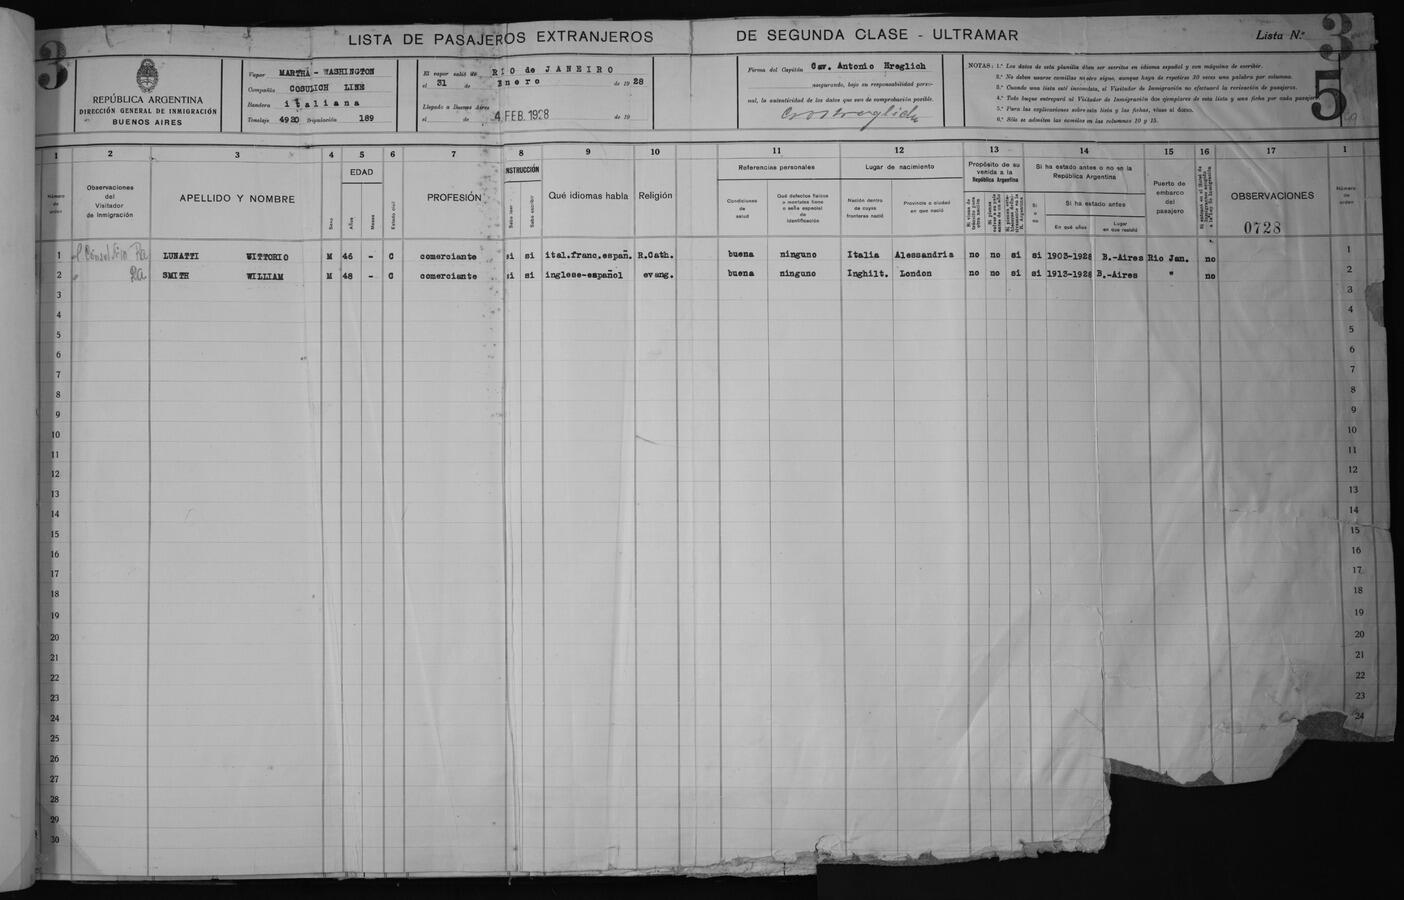 3
LISTA DE PASAJEROS EXTRANJEROS DE SEGUNDA CLASE - ULTRAMAR Lista N.º
3
5
REPÚBLICA ARGENTINA
DIRECCIÓN GENERAL DE INMIGRACIÓN
BUENOS AIRES
Vapor MARTHA - WASHINGTON
Compañía COSULICH LINE
Bandera italiana
Tonelaje 4920 Tripulación 189
El vapor salió de RIO de JANEIRO
el 31 de Enero de 1928
Llegado a Buenos Aires
el de 4 FEB. 1928 de 19
Firma del Capitán Cav. Antonio Hreglich
asegurando, bajo su responsabilidad perso-
nal, la autenticidad de los datos que son de comprobación posible.
NOTAS: 1.ª Los datos de esta planilla deben ser escritos en idioma español y con máquina de escribir.
2.ª No deben usarse comillas ni otro signo, aunque haya de repetirse 30 veces una palabra por columna.
3.ª Cuando una lista esté incompleta, el Visitador de Inmigración no efectuará la revisación de pasajeros.
4.ª Todo buque entregará al Visitador de Inmigración dos ejemplares de esta lista y una ficha por cada pasajero
5.ª Para las explicaciones sobre esta lista y las fichas, véase al dorso.
6.ª Sólo se admiten las comillas en las columnas 10 y 15.
1 2 3 4 5 6 7 8 9 10 11 12 13 14 15 16 17 1
Número de orden
Observaciones del Visitador de Inmigración
APELLIDO Y NOMBRE
Sexo
EDAD
Años
Meses
Estado civil
PROFESIÓN
INSTRUCCIÓN
Sabe leer
Sabe escribir
Qué idiomas habla
Religión
Referencias personales
Condiciones de salud
Qué defectos físicos o mentales tiene o seña especial de identificación
Lugar de nacimiento
Nación dentro de cuyas fronteras nació
Provincia o ciudad en que nació
Propósito de su venida a la República Argentina
Si ha estado antes o no en la República Argentina
Si o no
Si ha estado antes
En qué años
Lugar en que residió
Puerto de embarco del pasajero
OBSERVACIONES
0728
Número de orden
1 LUNATTI WITTORIO M 46 - C comerciante si si ital.franc.españ. R.Cath. buena ninguno Italia Alessandria no no si si 1903-1928 B.-Aires Rio Jan. no 1
2 SMITH WILLIAM M 48 - C comerciante si si inglese-español evang. buena ninguno Inghilt. London no no si si 1913-1928 B.-Aires " no 2
3 3
4 4
5 5
6 6
7 7
8 8
9 9
10 10
11 11
12 12
13 13
14 14
15 15
16 16
17 17
18 18
19 19
20 20
21 21
22 22
23 23
24 24
25
26
27
28
29
30